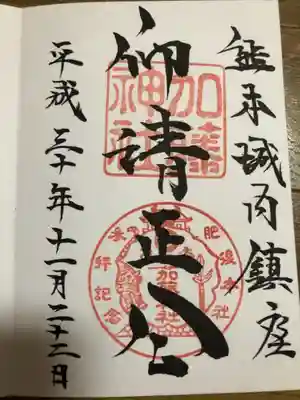 熊本城内鎮座
仰清正公
加藤神社
加藤神社
平成三十年十一月二十二日